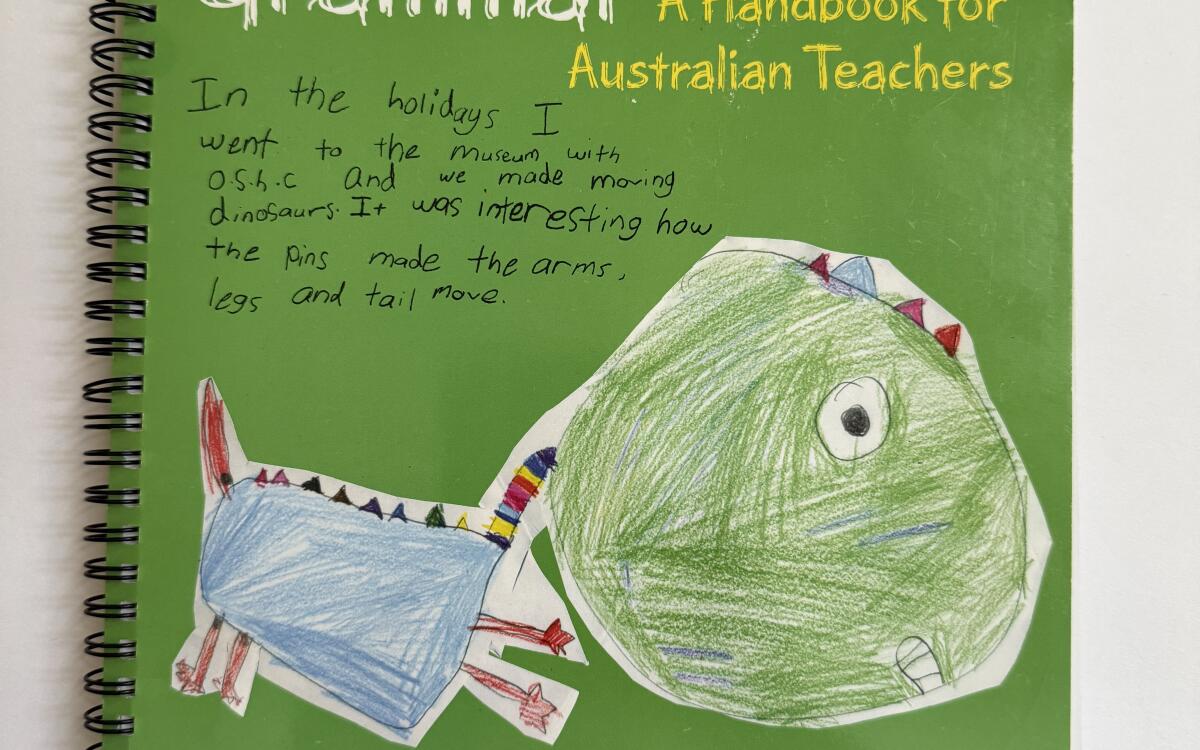 Grammar A Handbook for
Australian Teachers
In the holidays I
went to the museum with
o.s.h.c and we made moving
dinosaurs. It was interesting how
the pins made the arms,
legs and tail move.